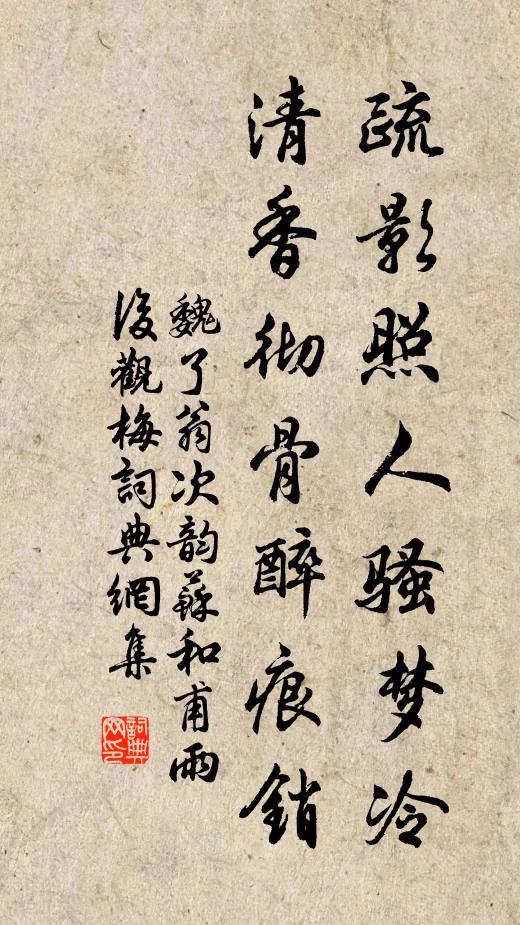 疏影照人骚梦冷
清香彻骨醉痕销
魏了翁次韵苏和甫雨
後觀梅詞典網集
詞典网印